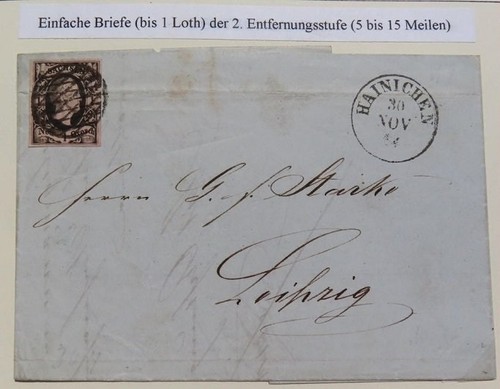 Einfache Briefe (bis 1 Loth) der 2. Entfernungsstufe (5 bis 15 Meilen)
HAINICHEN
30
NOV
54
Herrn G. F. Starke
Leipzig